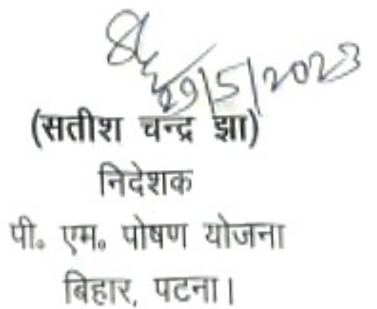 29/5/2023
(सतीश चन्द्र झा)
निदेशक
पी॰ एम॰ पोषण योजना
बिहार, पटना।